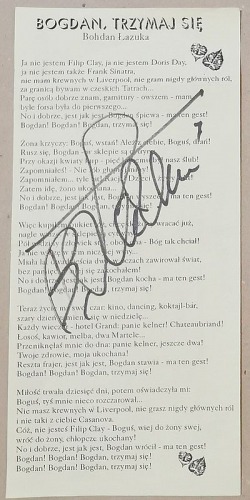 BOGDAN, TRZYMAJ SIĘ
Bohdan Łazuka
Ja nie jestem Filip Clay, ja nie jestem Doris Day,
ja nie jestem także Frank Sinatra,
nie mam krewnych w Liverpool, nie gram nigdy głównych ról,
za granicą bywam w czeskich Tatrach...
Parę osób dobrze znam, garnitury - owszem - mam,
byle forsa była do pierwszego...
No i dobrze, jest jak jest, Bogdan śpiewa - ma ten gest!
Bogdan! Bogdan! Bogdan, trzymaj się!
Zona krzyczy: Boguś, wstań! Ależ z ciebie, Boguś, drań!
Rusz się, bo sklepie są
Przy okazji kwiaty kup - pięć nasz ślub!
Zapomniałeś! -
Zapomniałem... Dzień
Zatem idę, żono ukochana...
No i dobrze, jest jak jest, Bogdan - ma ten gest!
Bogdan! Bogdan! Bogdan, trzymaj się!
Więc kupiłem już,
obok róż,
Pół obok - Bóg tak chciał!
Ja nie
Miała zawirował świat,
bez się zakochałem!
No i dobrze, jest Bogdan kocha - ma ten gest!
Bogdan! Bogdan! Bogdan, trzymaj się!
Teraz życie kino, dancing, koktajl-bar,
szary dzień zmienił się w niedzielę...
Każdy wieczór - hotel Grand: panie kelner! Chateaubriand!
Łosoś, kawior, melba, dwa Martele...
Przeniknąłeś mnie do dna! panie kelner, jeszcze dwa!
Twoje zdrowie, moja ukochana!
Reszta frajer, jest jak jest, Bogdan stawia - ma ten gest!
Bogdan! Bogdan! Bogdan, trzymaj się!
Miłość trwała dziesięć dni, potem oświadczyła mi:
Boguś, tyś mnie nieco rozczarował...
Nie masz krewnych w Liverpool, nie grasz nigdy głównych ról
i nie taki z ciebie Casanova.
Cóż, nie jesteś Filip Clay - Boguś, wiej do żony swej,
wróć do żony, chłopcze ukochany!
No i dobrze, jest jak jest, Bogdan wrócił - ma ten gest!
Bogdan! Bogdan! Bogdan, trzymaj się!